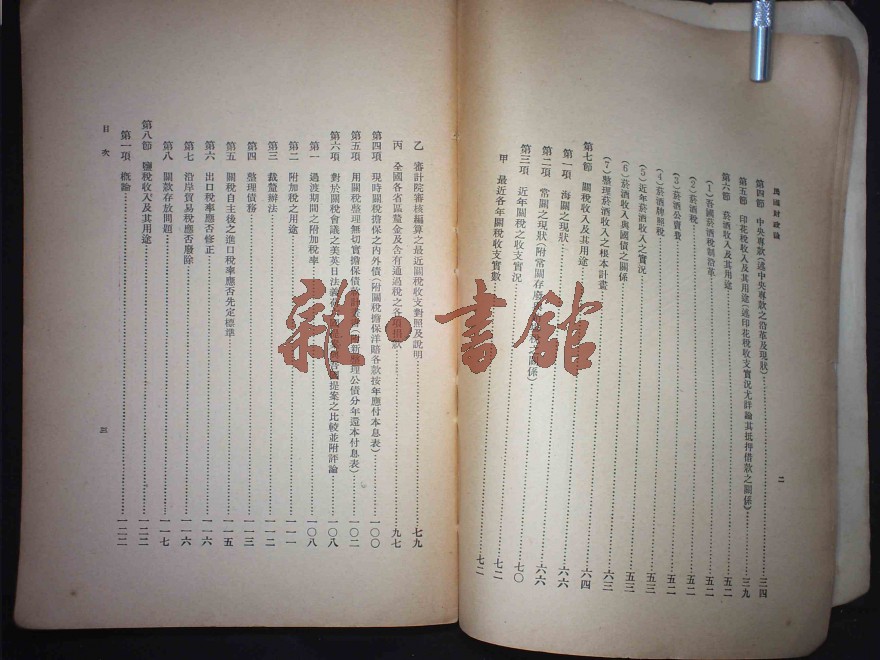 民國財政論
二
第四節 中央專款(述中央專款之沿革及現狀)…三四
第五節 印花稅收入及其用途(述印花稅收支實況尤詳論其抵押借款之關係)…三九
第六節 菸酒收入及其用途…五二
(1)吾國菸酒稅制沿革…五二
(2)菸酒稅…五二
(3)菸酒公賣費…五二
(4)菸酒牌照稅…五三
(5)近年菸酒收入之實況…五三
(6)菸酒收入與國債之關係…五三
(7)整理菸酒收入之根本計畫…六三
第七節 關稅收入及其用途…六四
第一項 海關之現狀…六六
第二項 常關之現狀(附常關存廢之關係)…六六
第三項 近年關稅之收支實況…七〇
甲 最近各年關稅收支實數…七二
乙 審計院審核編算之最近關稅收支對照及說明…七九
丙 全國各省區釐金及含有通過稅之各捐款…九七
第四項 現時關稅擔保之內外債(附關稅擔保洋賠各款按年應付本息表)…一〇〇
第五項 用關稅整理無切實擔保債新整理公債分年還本付息表)…一〇二
第六項 對於關稅會議之美英日法義提案之比較並附評論…一〇八
第一 過渡期間之附加稅率…一〇八
第二 附加稅之用途…一一一
第三 裁釐辦法…一一二
第四 整理債務…一一三
第五 關稅自主後之進口稅率應否先定標準…一一五
第六 出口稅率應否修正…一一六
第七 沿岸貿易稅應否廢除…一一六
第八 關款存放問題…一一七
第八節 鹽稅收入及其用途…一二二
第一項 概論…一二二
目次
三
雜·書館